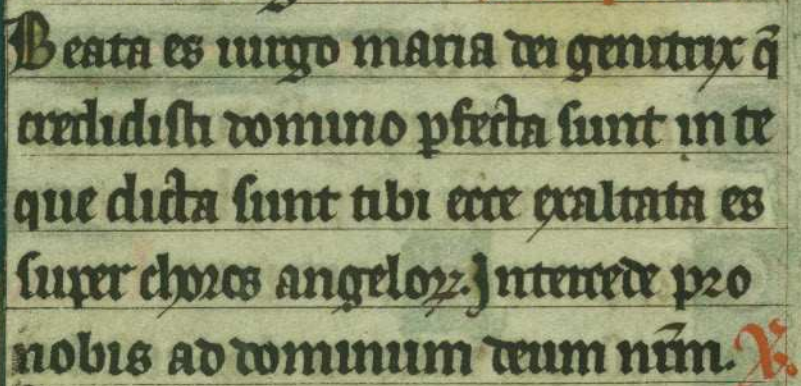 Beata es uirgo maria dei genitrix q̄
credidisti domino ꝑfecta sunt in te
que dicta sunt tibi ecce exaltata es
super choros angeloꝝ. Intercede pro
nobis ad dominum deum nr̄m. ℟